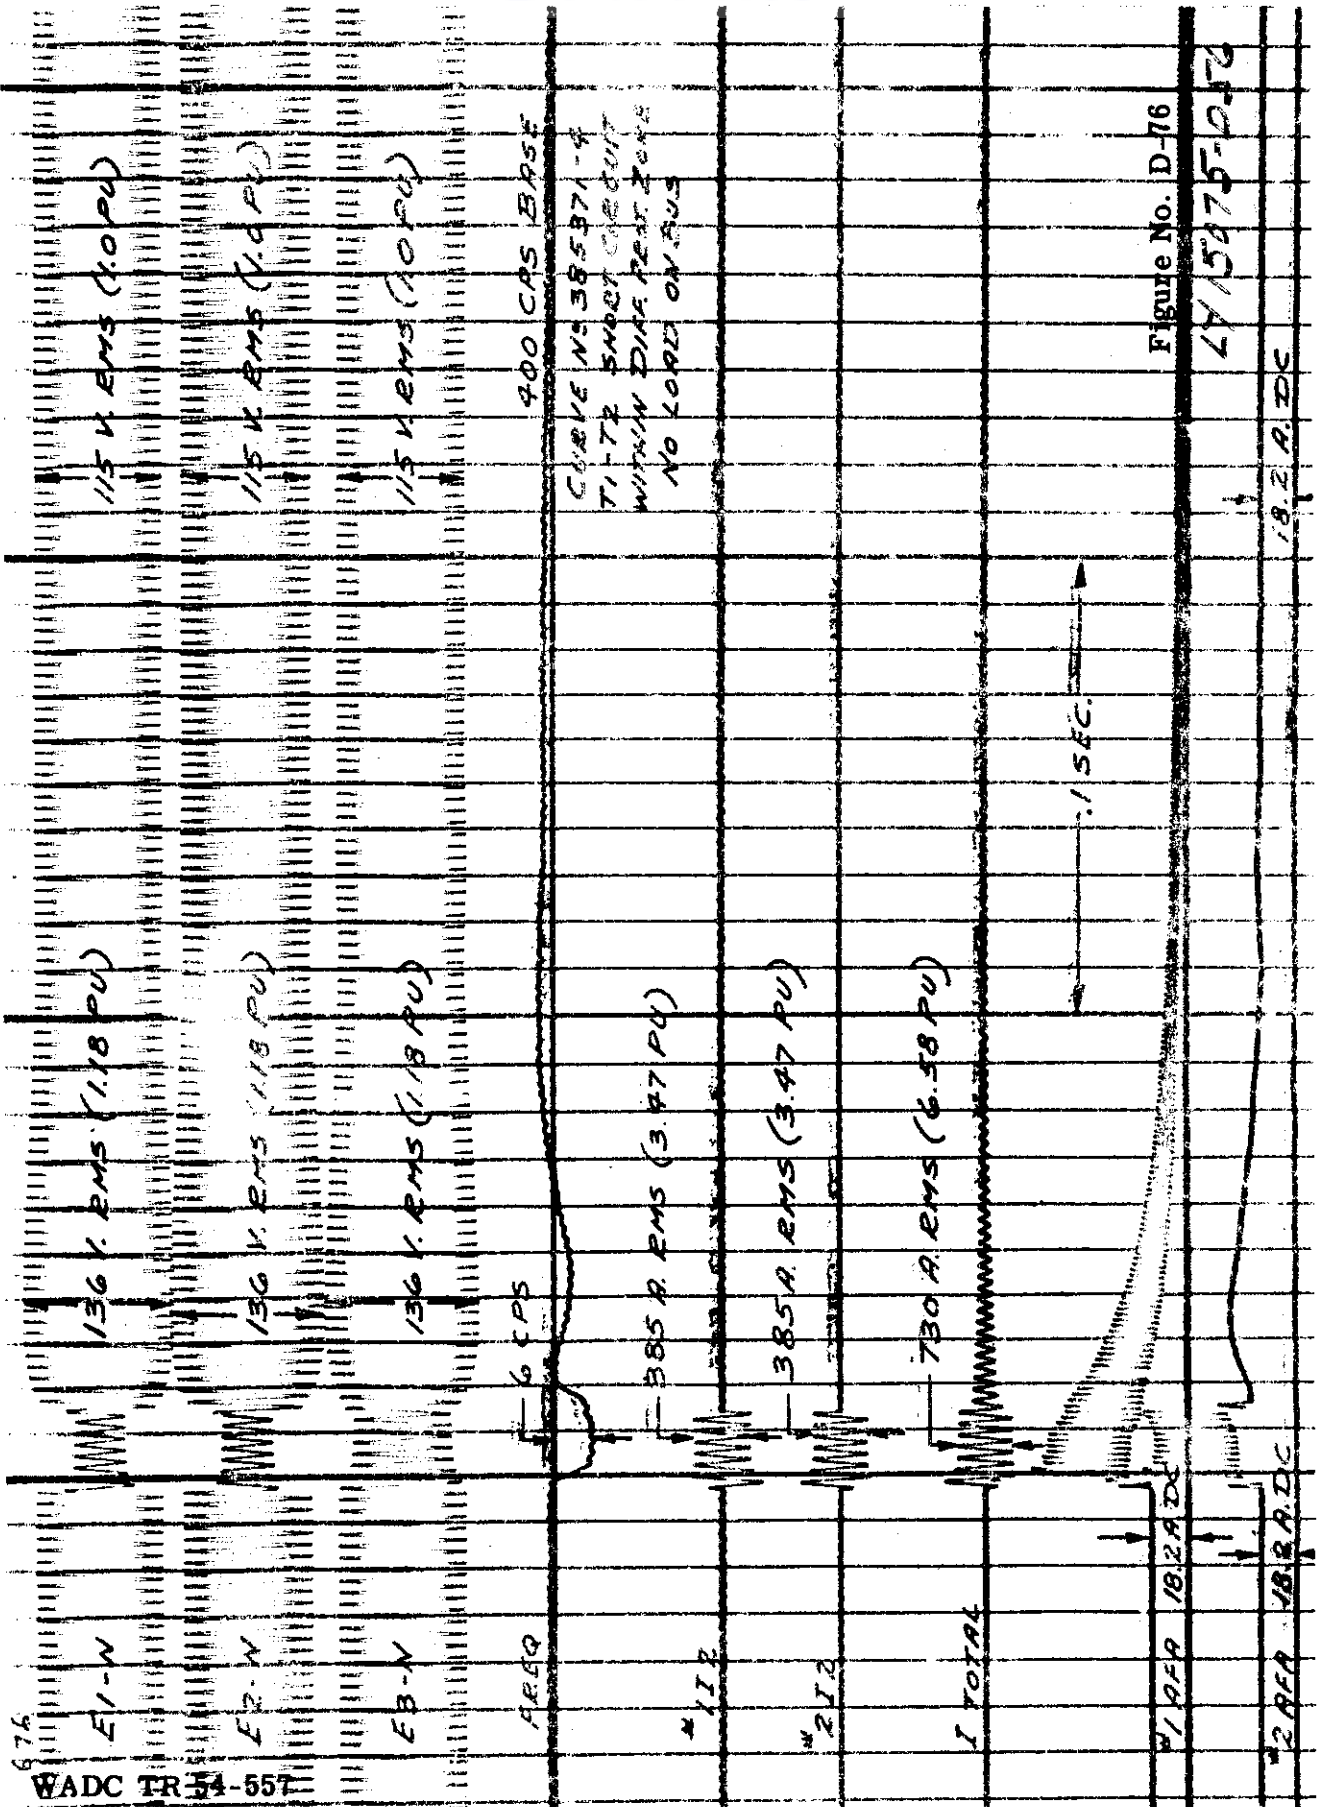 676
WADC TR 54-557
E1-N
136 V. RMS (1.18 PU)
115 V. RMS (1.0 PU)
E2-N
136 V. RMS (1.18 PU)
115 V. RMS (1.0 PU)
E3-N
136 V. RMS (1.18 PU)
115 V. RMS (1.0 PU)
FREQ
6 CPS
400 CPS BASE
CURVE No 385371-4
T1-T2 SHORT CIRCUIT
WITHIN DIFF. PROT. ZONE
NO LOAD ON BUS
#1 I2
385 A. RMS (3.47 PU)
#2 I2
385 A. RMS (3.47 PU)
I TOTAL
730 A. RMS (6.58 PU)
.1 SEC.
Figure No. D-76
#1 AFA 18.2 A DC
#2 AFA 18.2 A. DC
18.2 A. DC